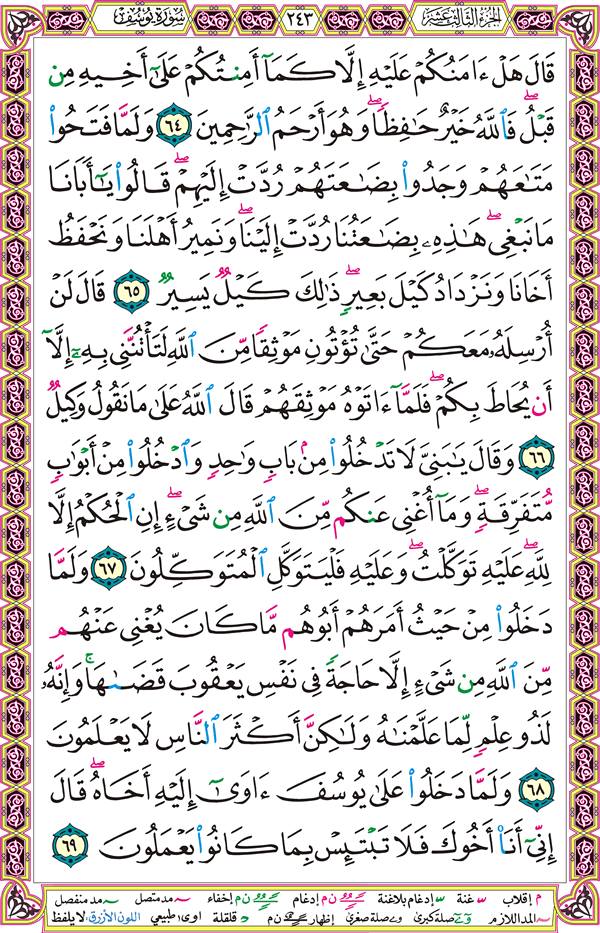 الجزء الثالث عشر ٢٤٣ سورة يوسف
قَالَ هَلْ ءَامَنُكُمْ عَلَيْهِ إِلَّا كَمَآ أَمِنتُكُمْ عَلَىٰٓ أَخِيهِ مِن
قَبْلُ ۖ فَٱللَّهُ خَيْرٌ حَـٰفِظًا ۖ وَهُوَ أَرْحَمُ ٱلرَّٰحِمِينَ ٦٤ وَلَمَّا فَتَحُوا۟
مَتَـٰعَهُمْ وَجَدُوا۟ بِضَـٰعَتَهُمْ رُدَّتْ إِلَيْهِمْ ۖ قَالُوا۟ يَـٰٓأَبَانَا
مَا نَبْغِى ۖ هَـٰذِهِۦ بِضَـٰعَتُنَا رُدَّتْ إِلَيْنَا ۖ وَنَمِيرُ أَهْلَنَا وَنَحْفَظُ
أَخَانَا وَنَزْدَادُ كَيْلَ بَعِيرٍ ۖ ذَٰلِكَ كَيْلٌ يَسِيرٌ ٦٥ قَالَ لَنْ
أُرْسِلَهُۥ مَعَكُمْ حَتَّىٰ تُؤْتُونِ مَوْثِقًا مِّنَ ٱللَّهِ لَتَأْتُنَّنِى بِهِۦٓ إِلَّآ
أَن يُحَاطَ بِكُمْ ۖ فَلَمَّآ ءَاتَوْهُ مَوْثِقَهُمْ قَالَ ٱللَّهُ عَلَىٰ مَا نَقُولُ وَكِيلٌ
٦٦ وَقَالَ يَـٰبَنِىَّ لَا تَدْخُلُوا۟ مِنۢ بَابٍ وَٰحِدٍ وَٱدْخُلُوا۟ مِنْ أَبْوَٰبٍ
مُّتَفَرِّقَةٍ ۖ وَمَآ أُغْنِى عَنكُم مِّنَ ٱللَّهِ مِن شَىْءٍ ۖ إِنِ ٱلْحُكْمُ إِلَّا
لِلَّهِ ۖ عَلَيْهِ تَوَكَّلْتُ ۖ وَعَلَيْهِ فَلْيَتَوَكَّلِ ٱلْمُتَوَكِّلُونَ ٦٧ وَلَمَّا
دَخَلُوا۟ مِنْ حَيْثُ أَمَرَهُمْ أَبُوهُم مَّا كَانَ يُغْنِى عَنْهُم
مِّنَ ٱللَّهِ مِن شَىْءٍ إِلَّا حَاجَةً فِى نَفْسِ يَعْقُوبَ قَضَىٰهَا ۚ وَإِنَّهُۥ
لَذُو عِلْمٍ لِّمَا عَلَّمْنَـٰهُ وَلَـٰكِنَّ أَكْثَرَ ٱلنَّاسِ لَا يَعْلَمُونَ
٦٨ وَلَمَّا دَخَلُوا۟ عَلَىٰ يُوسُفَ ءَاوَىٰٓ إِلَيْهِ أَخَاهُ ۖ قَالَ
إِنِّىٓ أَنَا۠ أَخُوكَ فَلَا تَبْتَئِسْ بِمَا كَانُوا۟ يَعْمَلُونَ ٦٩
م إقلاب غنة إدغام بلاغنة ن م إدغام ن م إخفاء مد متصل مد منفصل
المد اللازم صلة كبرى صلة صغرى إظهار ن م قلقلة اوى طبيعي اللون الأزرق: لا يلفظ